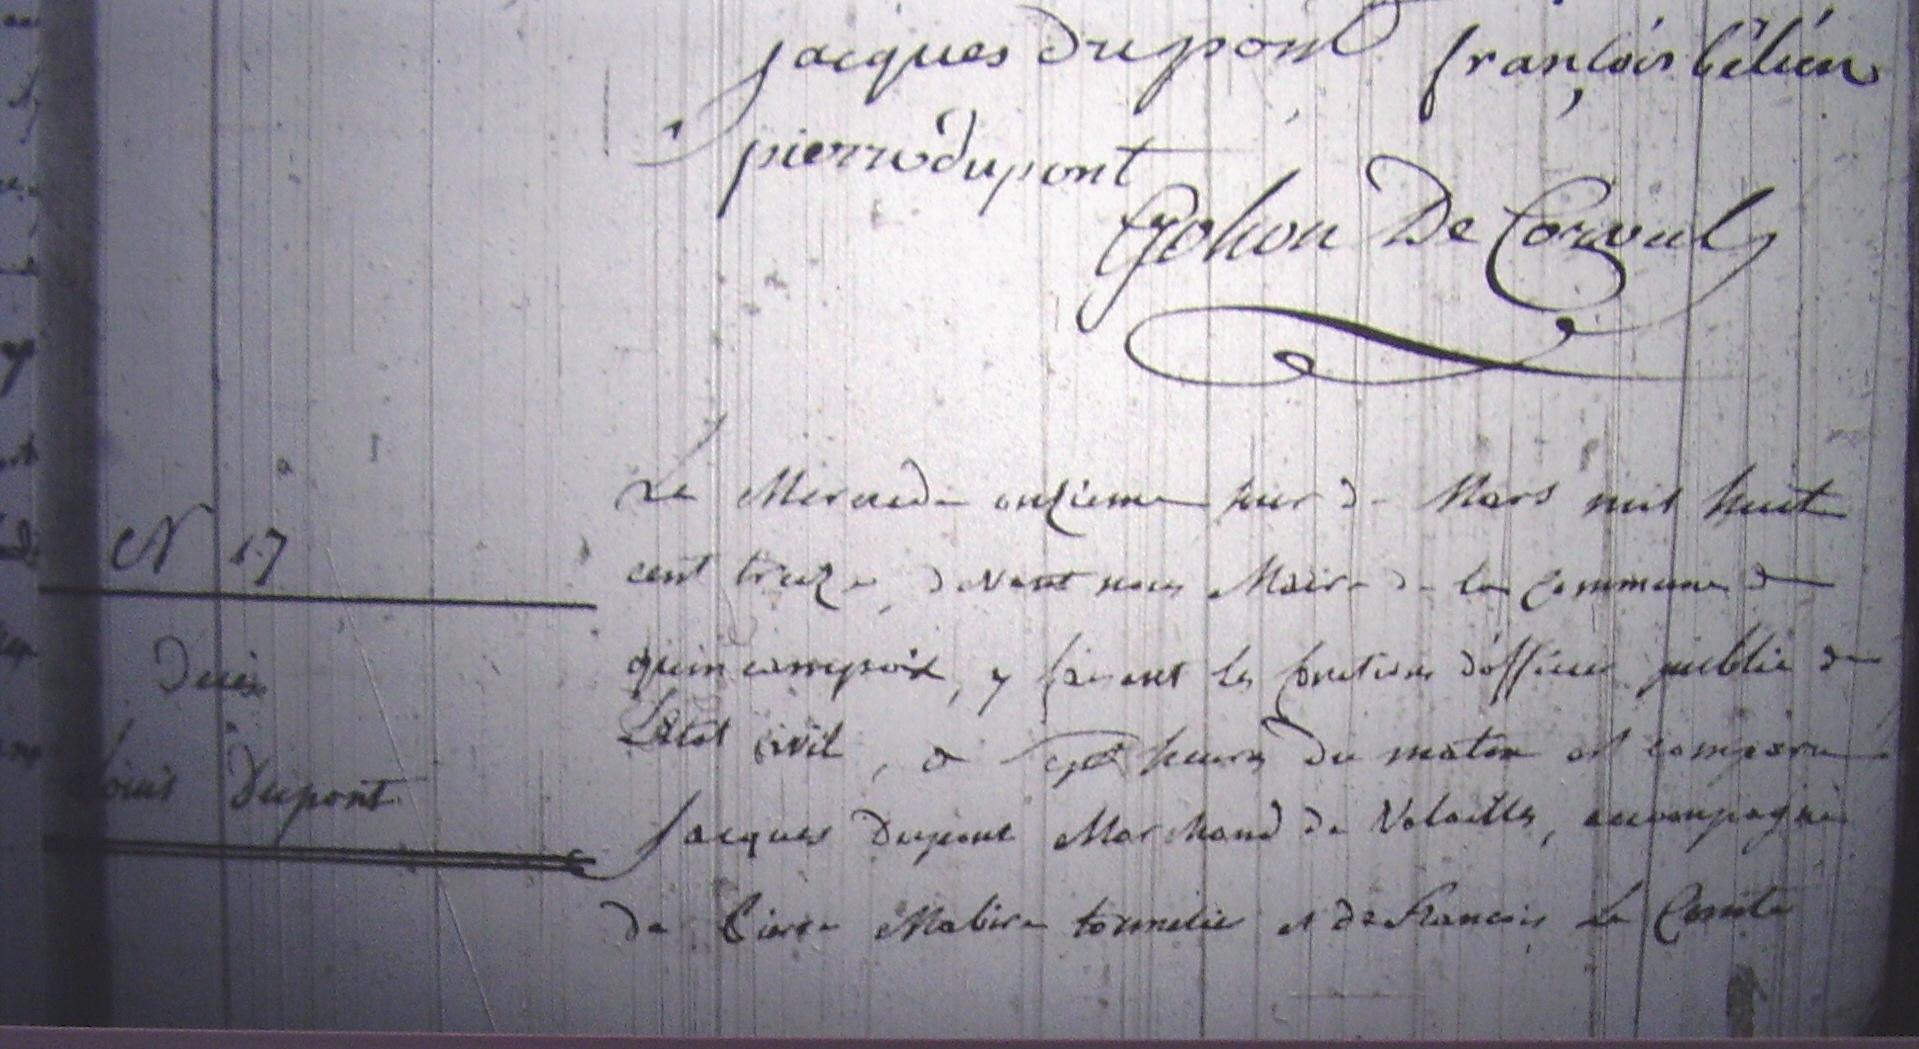 jacques dupont françois
pierre dupont
De
N 17
Decès
Louis Dupont
Le Mercredi onzieme jour de Mars mil huit
cent treize, devant nous Maire de la Commune de
quincampoix, y faisant les fonctions d'officier public de
L'état civil, a sept heures du matin est comparu
Jacques Dupont Marchand de Volailles, accompagné
de Pierre Mabire tonnelier et de Francois Le Comte